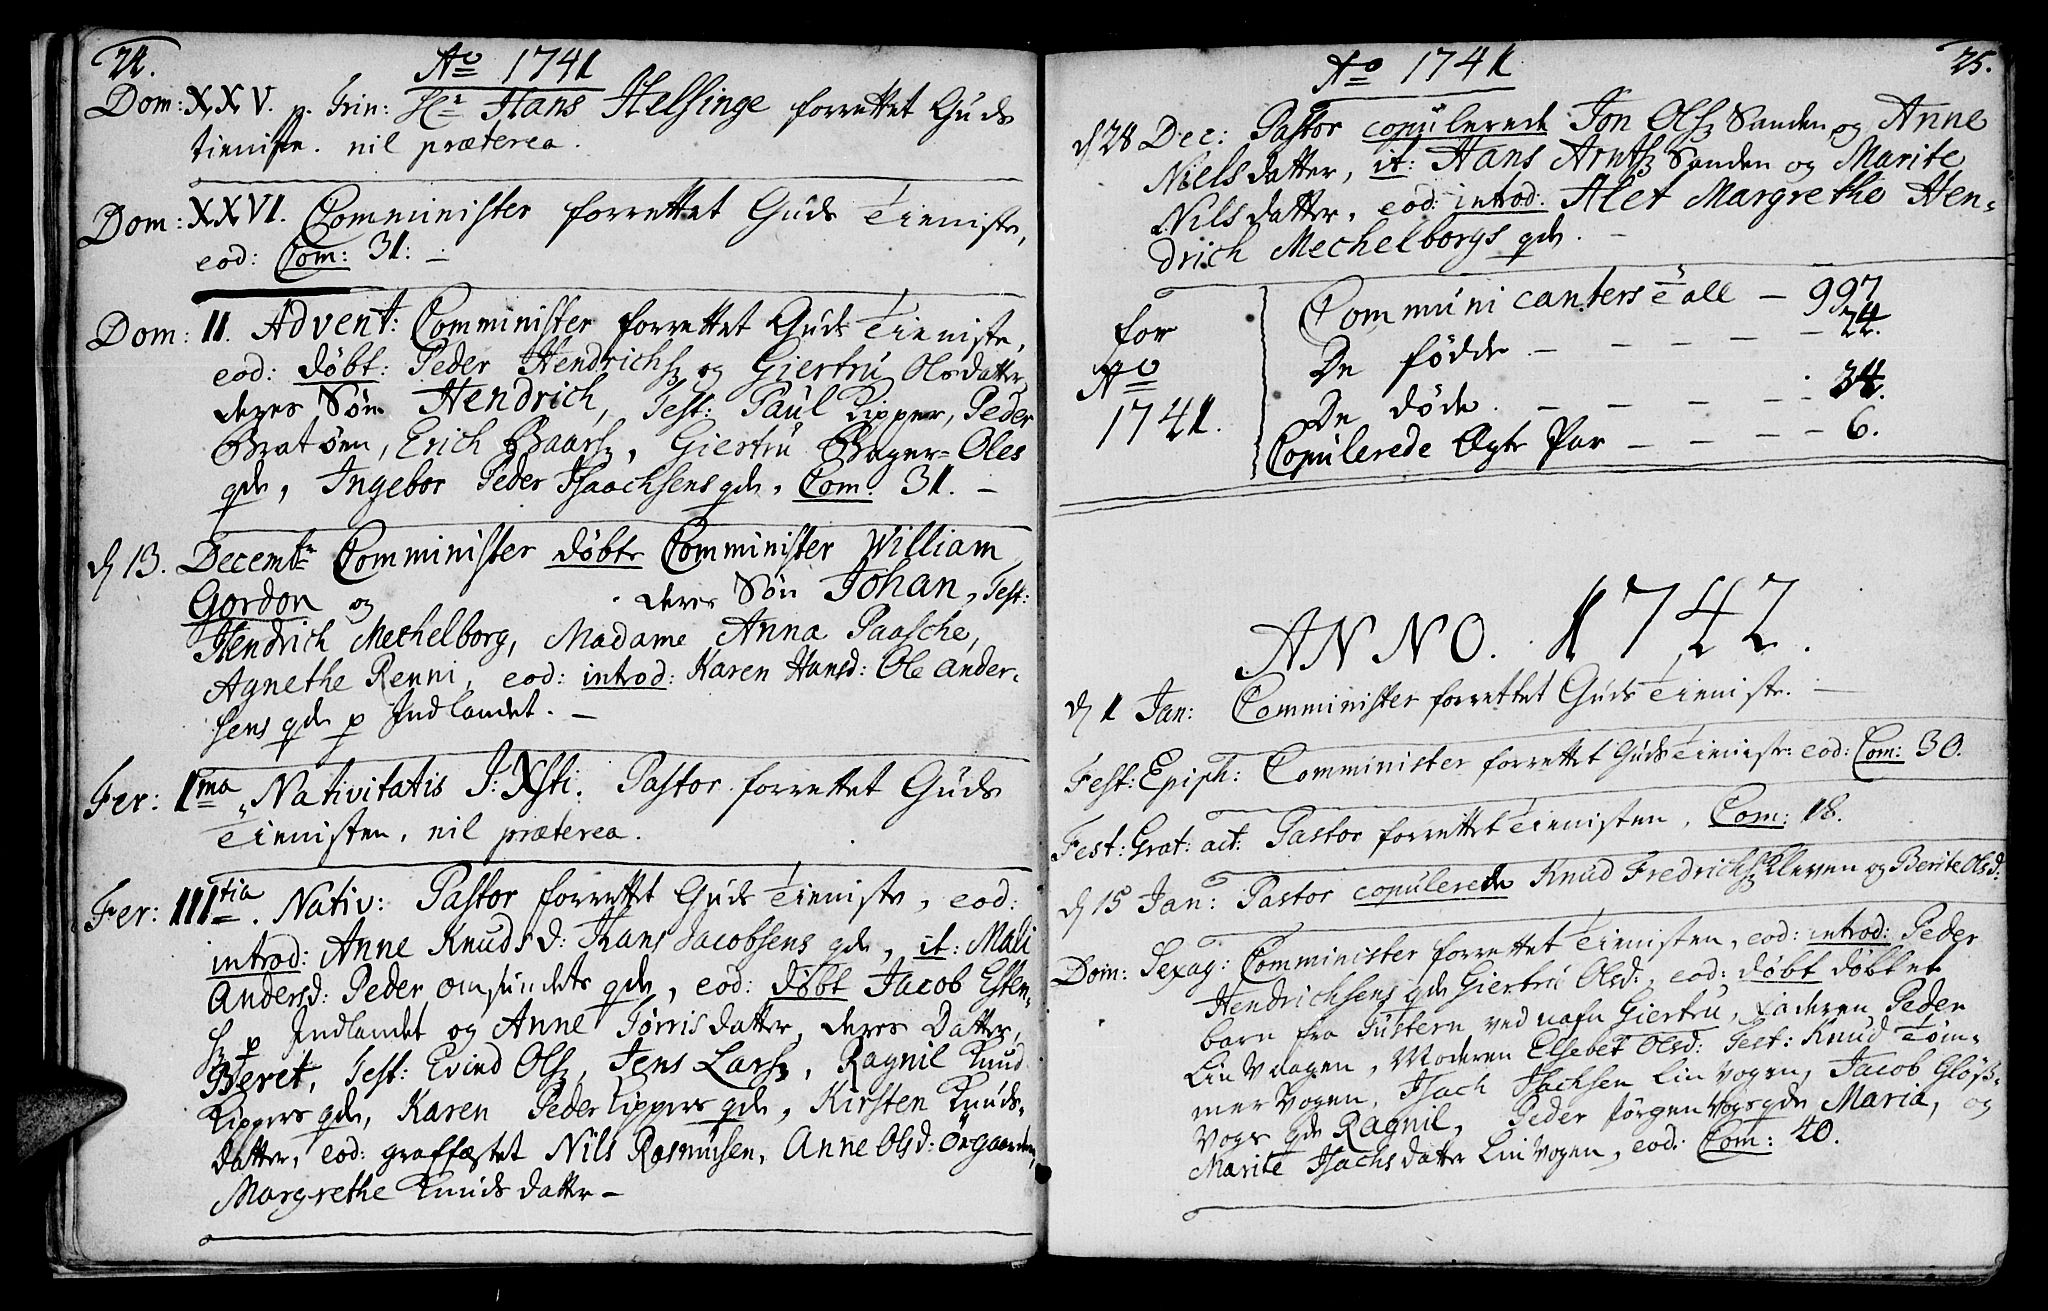 24.
Ao 1741
Dom: XXV. p. Trin: Hr Hans Helsinge forrettet Guds
tieniste. nil præterea.
Dom: XXVI. Comminister forrettet Guds Tieniste,
eod: Com: 31. —
Dom: II. Advent: Comminister forrettet Guds Tieniste,
eod: døbt: Peder Hendrichs: og Giertru Olsdatter
deres Søn Hendrich, Test: Paul Kipper, Peder
Bratøen, Erich Baars:, Giertru Bager-Oles
qde, Ingebor Peder Isaachsens qde, Com: 31. —
d 13. Decembr Comminister døbte Comminister William
Gordon og . deres Søn Johan, Test:
Hendrich Mechelborg, Madame Anna Paasche,
Agnethe Renni, eod: introd: Karen Hansd: Ole Ander-
sens qde p Indlandet. —
Fer: Ima Nativitatis J: Xsti. Pastor forrettet Guds
Tienisten, nil præterea.
Fer: IIItia. Nativ: Pastor forrettet Guds Tieniste, eod:
introd: Anne Knudsd: Hans Jacobsens qde, it: Mali
Andersd: Peder Omsundets qde, eod: døbt Jacob Esten-
s: p Indlandet og Anne Tørrisdatter, deres Datter,
Beret, Test: Evind Ols:, Jens Lars:, Ragnil Knud
Kippers qde, Karen Peder Kippers qde, Kirsten Knuds-
datter, eod: graffæstet Nils Rasmusen, Anne Olsd: Ørgaarden,
Margrethe Knudsdatter —
25.
Ao 1741
d 28 Dec: Pastor copulerede Jon Ols: Sanden og Anne
Nielsdatter, it: Hans Arnts: Sanden og Marite
Nilsdatter, eod: introd. Alet Margrethe Hen-
drich Mechelborgs qde. —
for
Ao
1741.
Communicanters e all — 997
De fødde — — — — 24.
De døde. — — — — 34.
Copulerede Ægte Par — — — — 6.
ANNO. 1742.
d 1 Jan: Comminister forrettet Guds Tieniste. —
Fest: Epiph: Comminister forrettet Guds Tieniste eod: Com: 30.
Fest: Grat: act: Pastor forrettet Tienisten, Com: 18.
d 15 Jan: Pastor copulerede Knud Fredrichs: Kleven og Berite Olsd:
Dom: Sexag: Comminister forrettet Tienisten, eod: introd: Peder
Hendrichsens qde Giertru Olsd:, eod: døbt døbt et
barn fra Tustern ved nafn Giertru, Faderen Peder
Lin Vaagen, Moderen Elsebet Olsd: Test: Knud Tøm-
mer Vogen, Isach Isachsen Lin Vogen, Jacob Gløs-
Vogs qde Ragnil, Peder Jørgen Vogs qde Maria, og
Marite Isachsdatter Lin Vogen, eod: Com: 40.